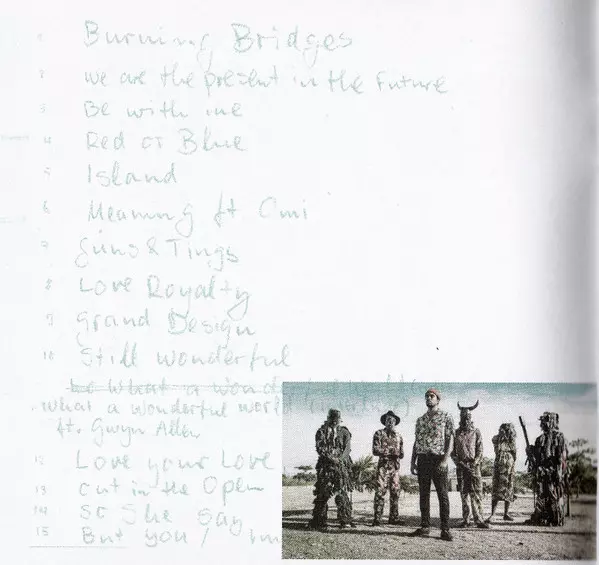 1 Burning Bridges
2 we are the present in the Future
3 Be with me
4 Red or Blue
5 Island
6 Meaning ft Omi
7 Guns & Tings
8 Love Royalty
9 Grand Design
10 Still wonderful
what a wonderful world
ft. Gwyn Allen
12 Love your Love
13 out in the Open
14 So She say
15 But you /